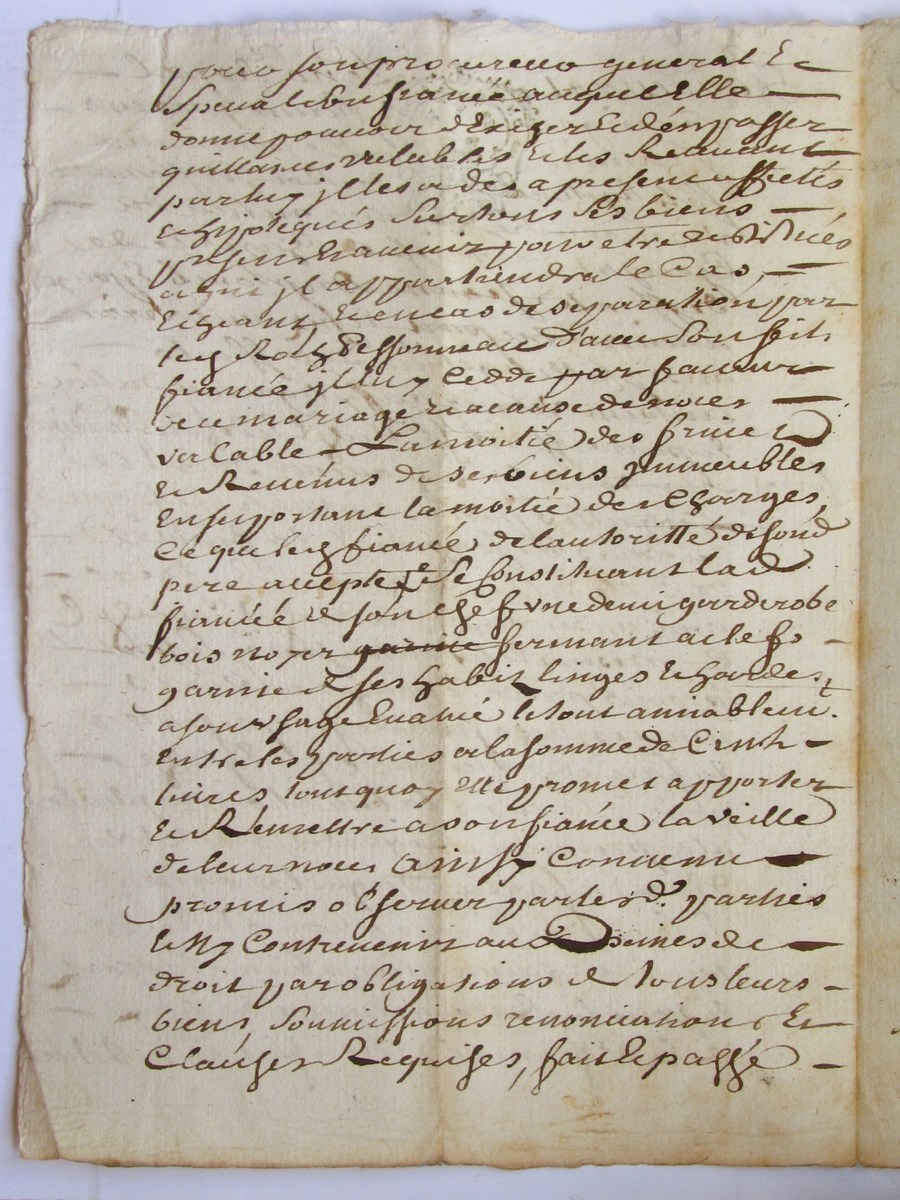 pour son procureur general Et
Special Son fiancé auquel Elle
donne pouvoir d'Exiger Et d'en passer
quittances valables Et les Recevant
par luy jl les a des a present affectés
et hipotequés Sur tous Ses biens
presens Et avenir pour etre Restitués
a qui jl appartiendra le Cas
Echeant Et en cas de Separation par
led Essonneau d'avec Son fils
fiancé jl luy Cedde par faveur
de ce mariage Et a cause de noces
valable La moitié des fruits
Et Revenus de Ses biens jmmeubles
En suportant la moitié des Charges,
Ce que led fiancé de l'autoritté de sond
pere accepte Se Constituant lad
fiancée de son Chef une demi garderobe
bois noyer garnie fermant a clef
garnie de Ses habits linges Et hardes
a son usage Evalué le tout amiablem.
Entre les parties a la somme de Cent
livres tout quoy Elle promet apporter
Et Remettre a son fiancé la veille
de leur noces Ainsy Convenu
promis observer par lesd. parties
Et N'y Contrevenir au Peines de
droit par obligations de tous leurs
biens, Soumissions renonciations Et
Clauses Requises, fait Et passé